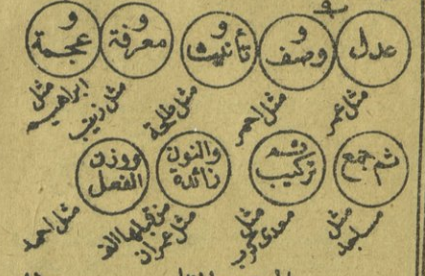 عدل
ووصف
وتأنيث
ومعرفة
وعجمة
مثل عمر
مثل احمر
مثل طلحة
مثل زينب
مثل ابراهيم
ثم جمع
ثم تركيب
والنون زائدة
ووزن الفعل
مثل مساجد
مثل معدى كرب
من قبلها الف
مثل عمران
مثل احمد